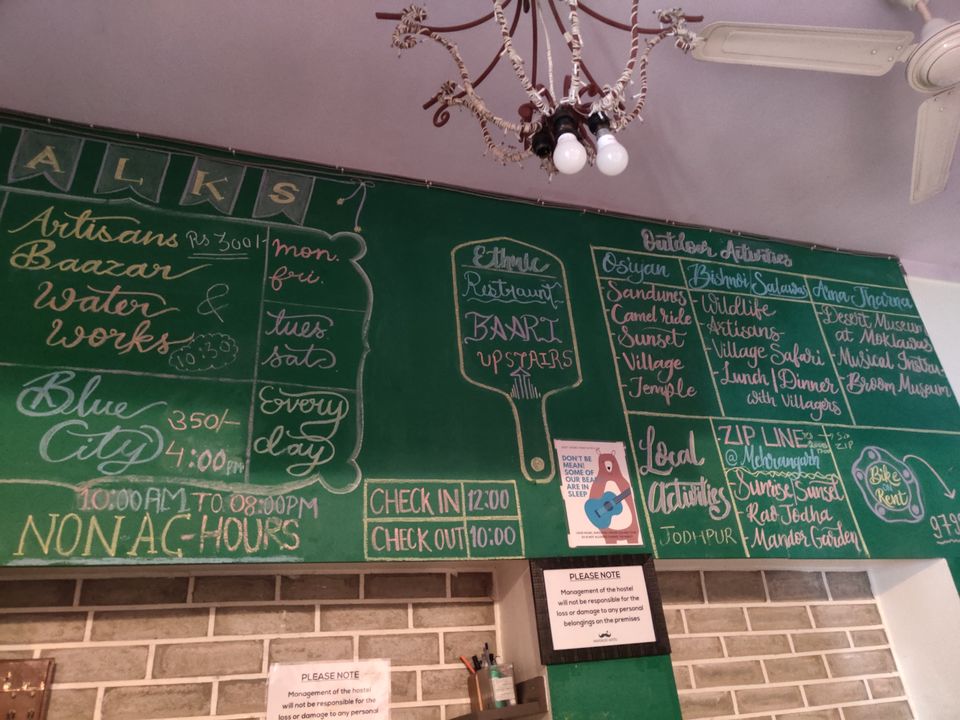 ALKS
Artisans Rs 300/-
Baazar
Water &
Works 10:30
mon.
fri.
tues
sats
Blue 350/-
City 4:00pm
Every
day
10:00AM TO 08:00PM
NON AC-HOURS
CHECK IN 12:00
CHECK OUT 10:00
Ethnic
Restraunt
BAARI
UPSTAIRS
DON'T BE
MEAN!
SOME OF
OUR BEA
ARE IN
SLEEP
Outdoor Activities
Osiyan
Sandunes
-Camel ride
-Sunset
-Village
-Temple
Bishnoi Salawas
-Wildlife
-Artisans
-Village Safari
-Lunch/Dinner
with Villagers
Arna Jharna
-Desert Museum
at Moklawas
-Musical Instru
-Broom Museum
Local
Activities
JODHPUR
ZIP LINE
@ Mehrangarh
-Sunrise/Sunset
-Rao Jodha
-Mandor Garden
Bike
on
Rent
PLEASE NOTE
Management of the hostel
will not be responsible for the
loss or damage to any personal
belongings on the premises
PLEASE NOTE
Management of the hostel
will not be responsible for the
loss or damage to any personal